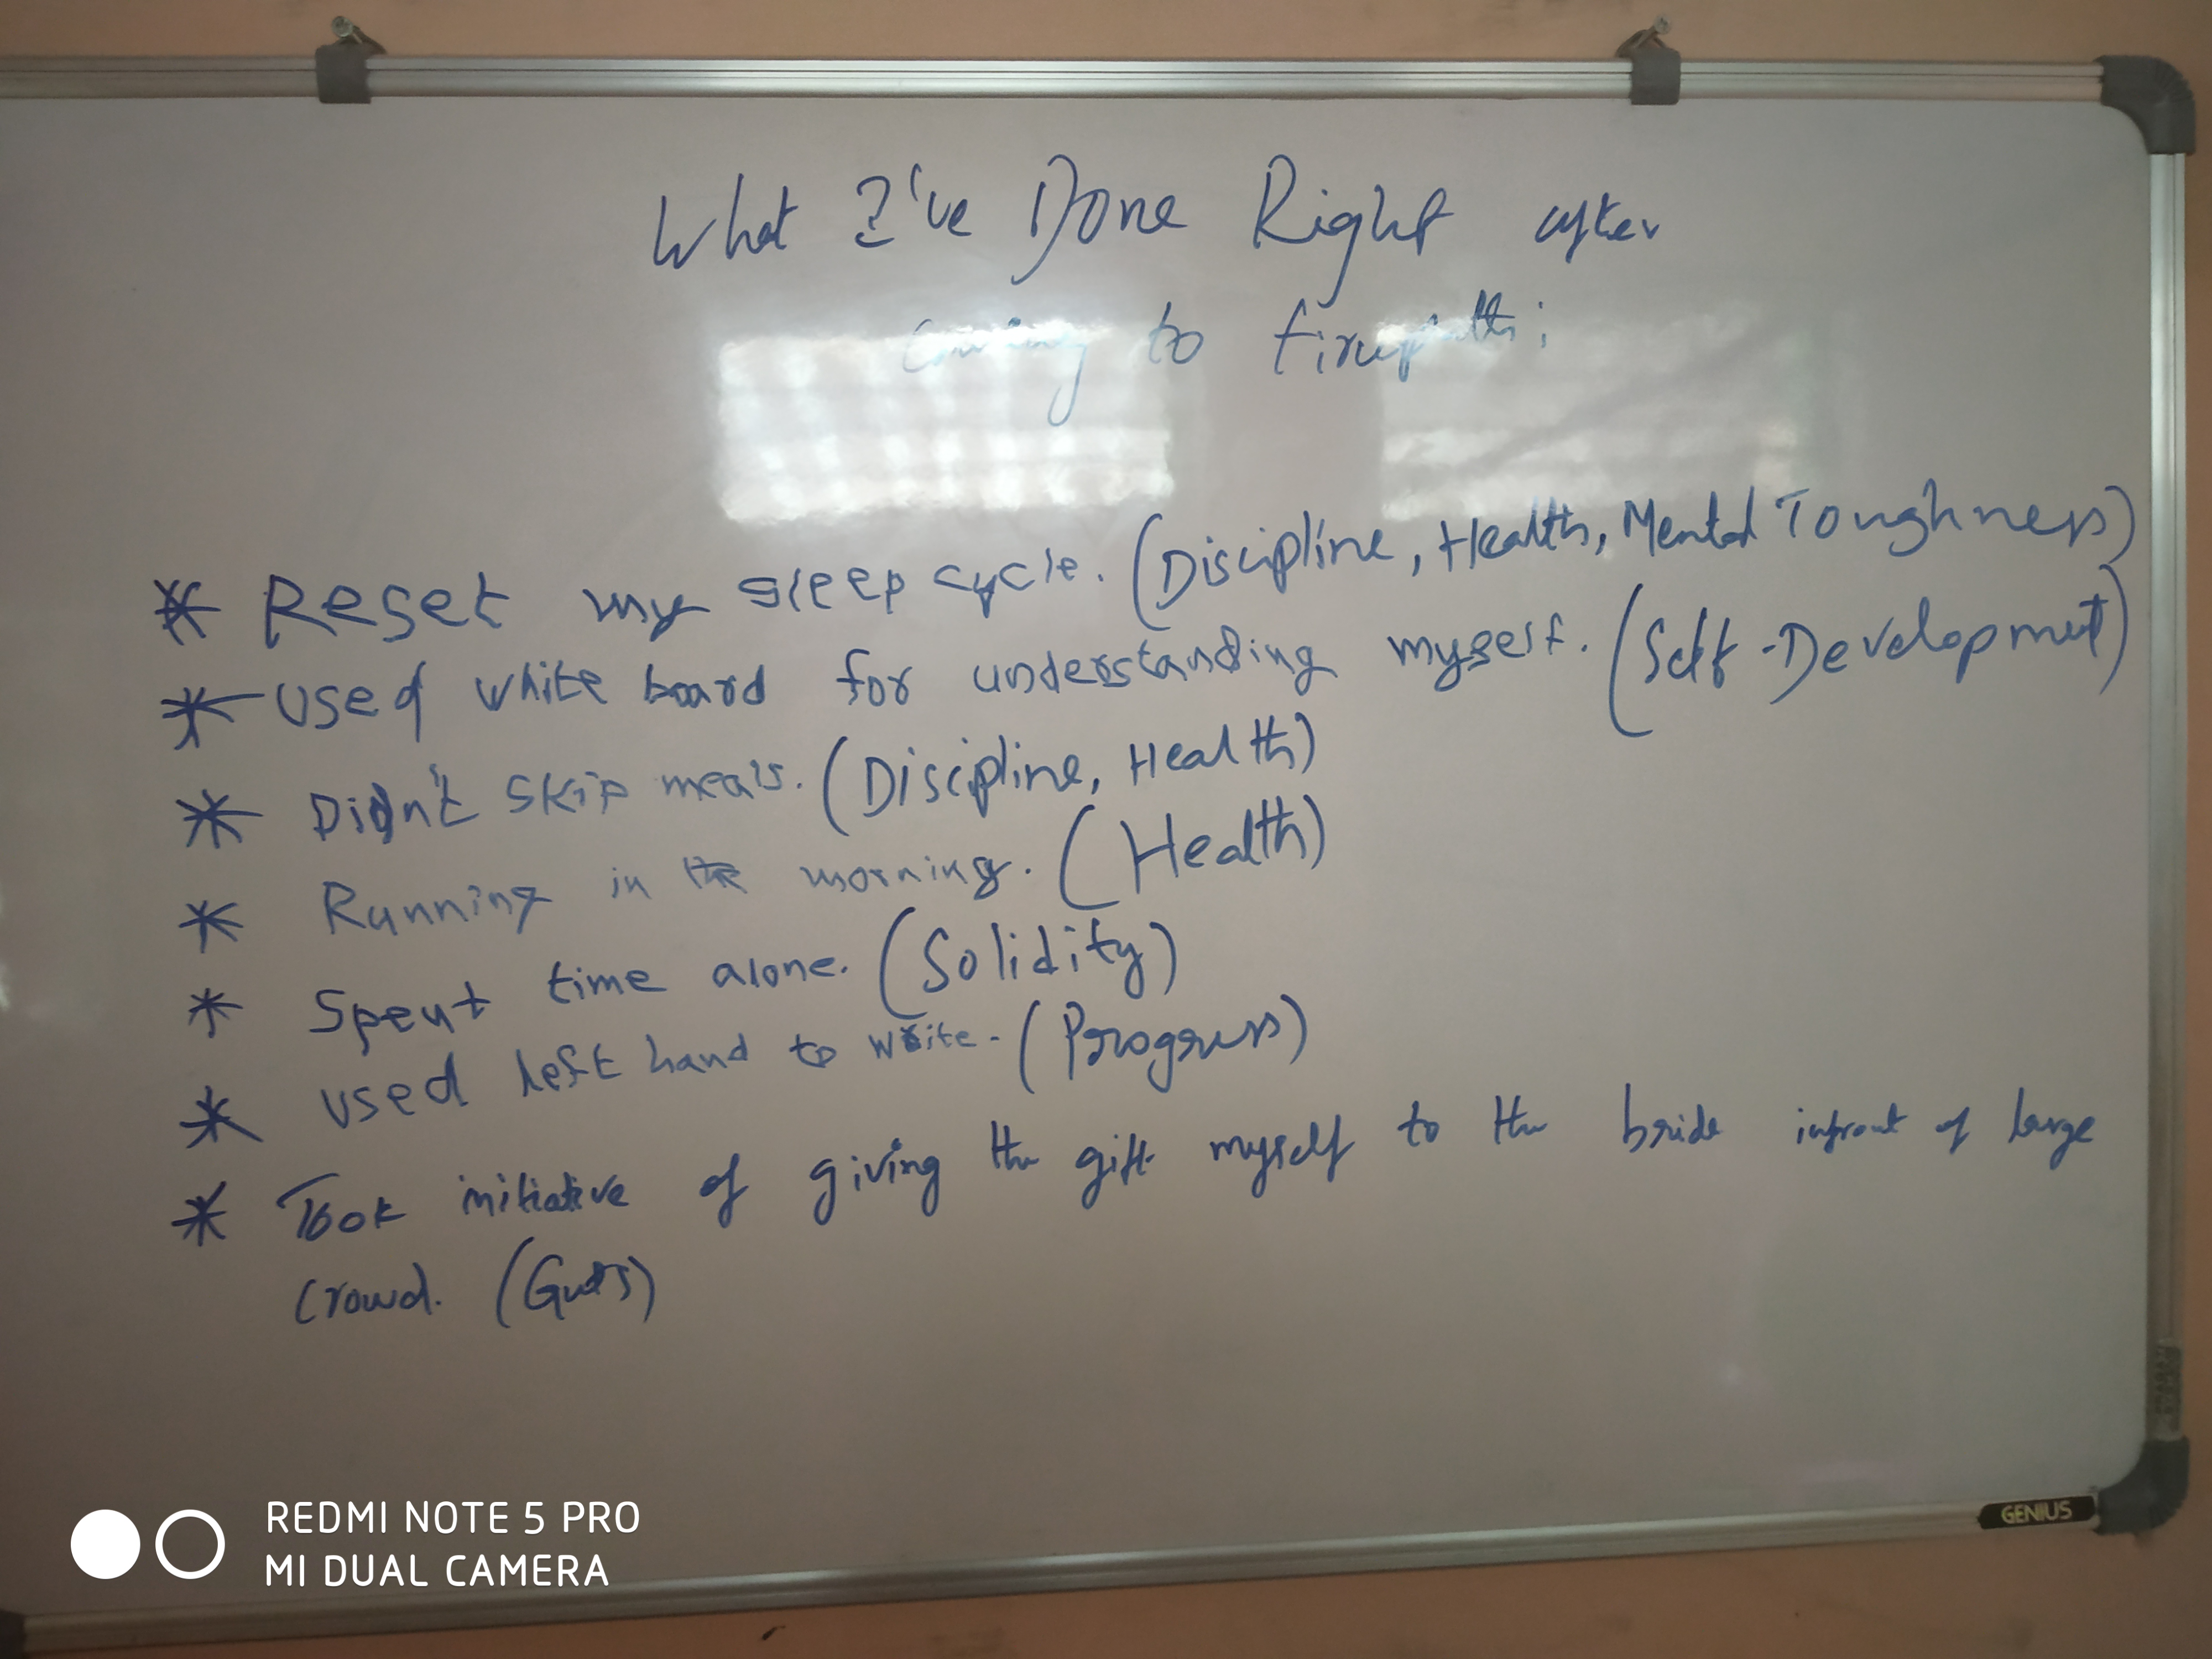 What I've Done Right after
coming to tirupathi:
* Reset my sleep cycle. (Discipline, Health, Mental Toughness)
* Used white board for understanding myself. (Self-Developmet)
* Didn't skip meals. (Discipline, Health)
* Running in the morning. (Health)
* Spent time alone. (Solidity)
* Used left hand to write. (Progress)
* Took initiative of giving the gift myself to the bride infront of large
crowd. (Guts)
REDMI NOTE 5 PRO
MI DUAL CAMERA
GENIUS